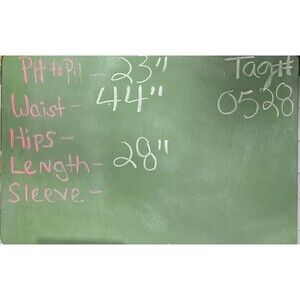 Pit to Pit - 23" Tag#
Waist - 44" 0528
Hips -
Length - 28"
Sleeve -